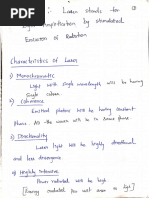 : Laser stands for
Light Amplification by stimulated
Emission of Radiation
Characteristics of Laser
1) Monochromatic
Light with single wavelength will be having
Single colour
2) Coherence
Emitted photons will be having constant
Phase the waves will be in same phase
3) Directionality
Laser light will be highly directional
and less divergence
4) Highly Intensive
Power radiated will be high
[Energy radiated per unit area high]